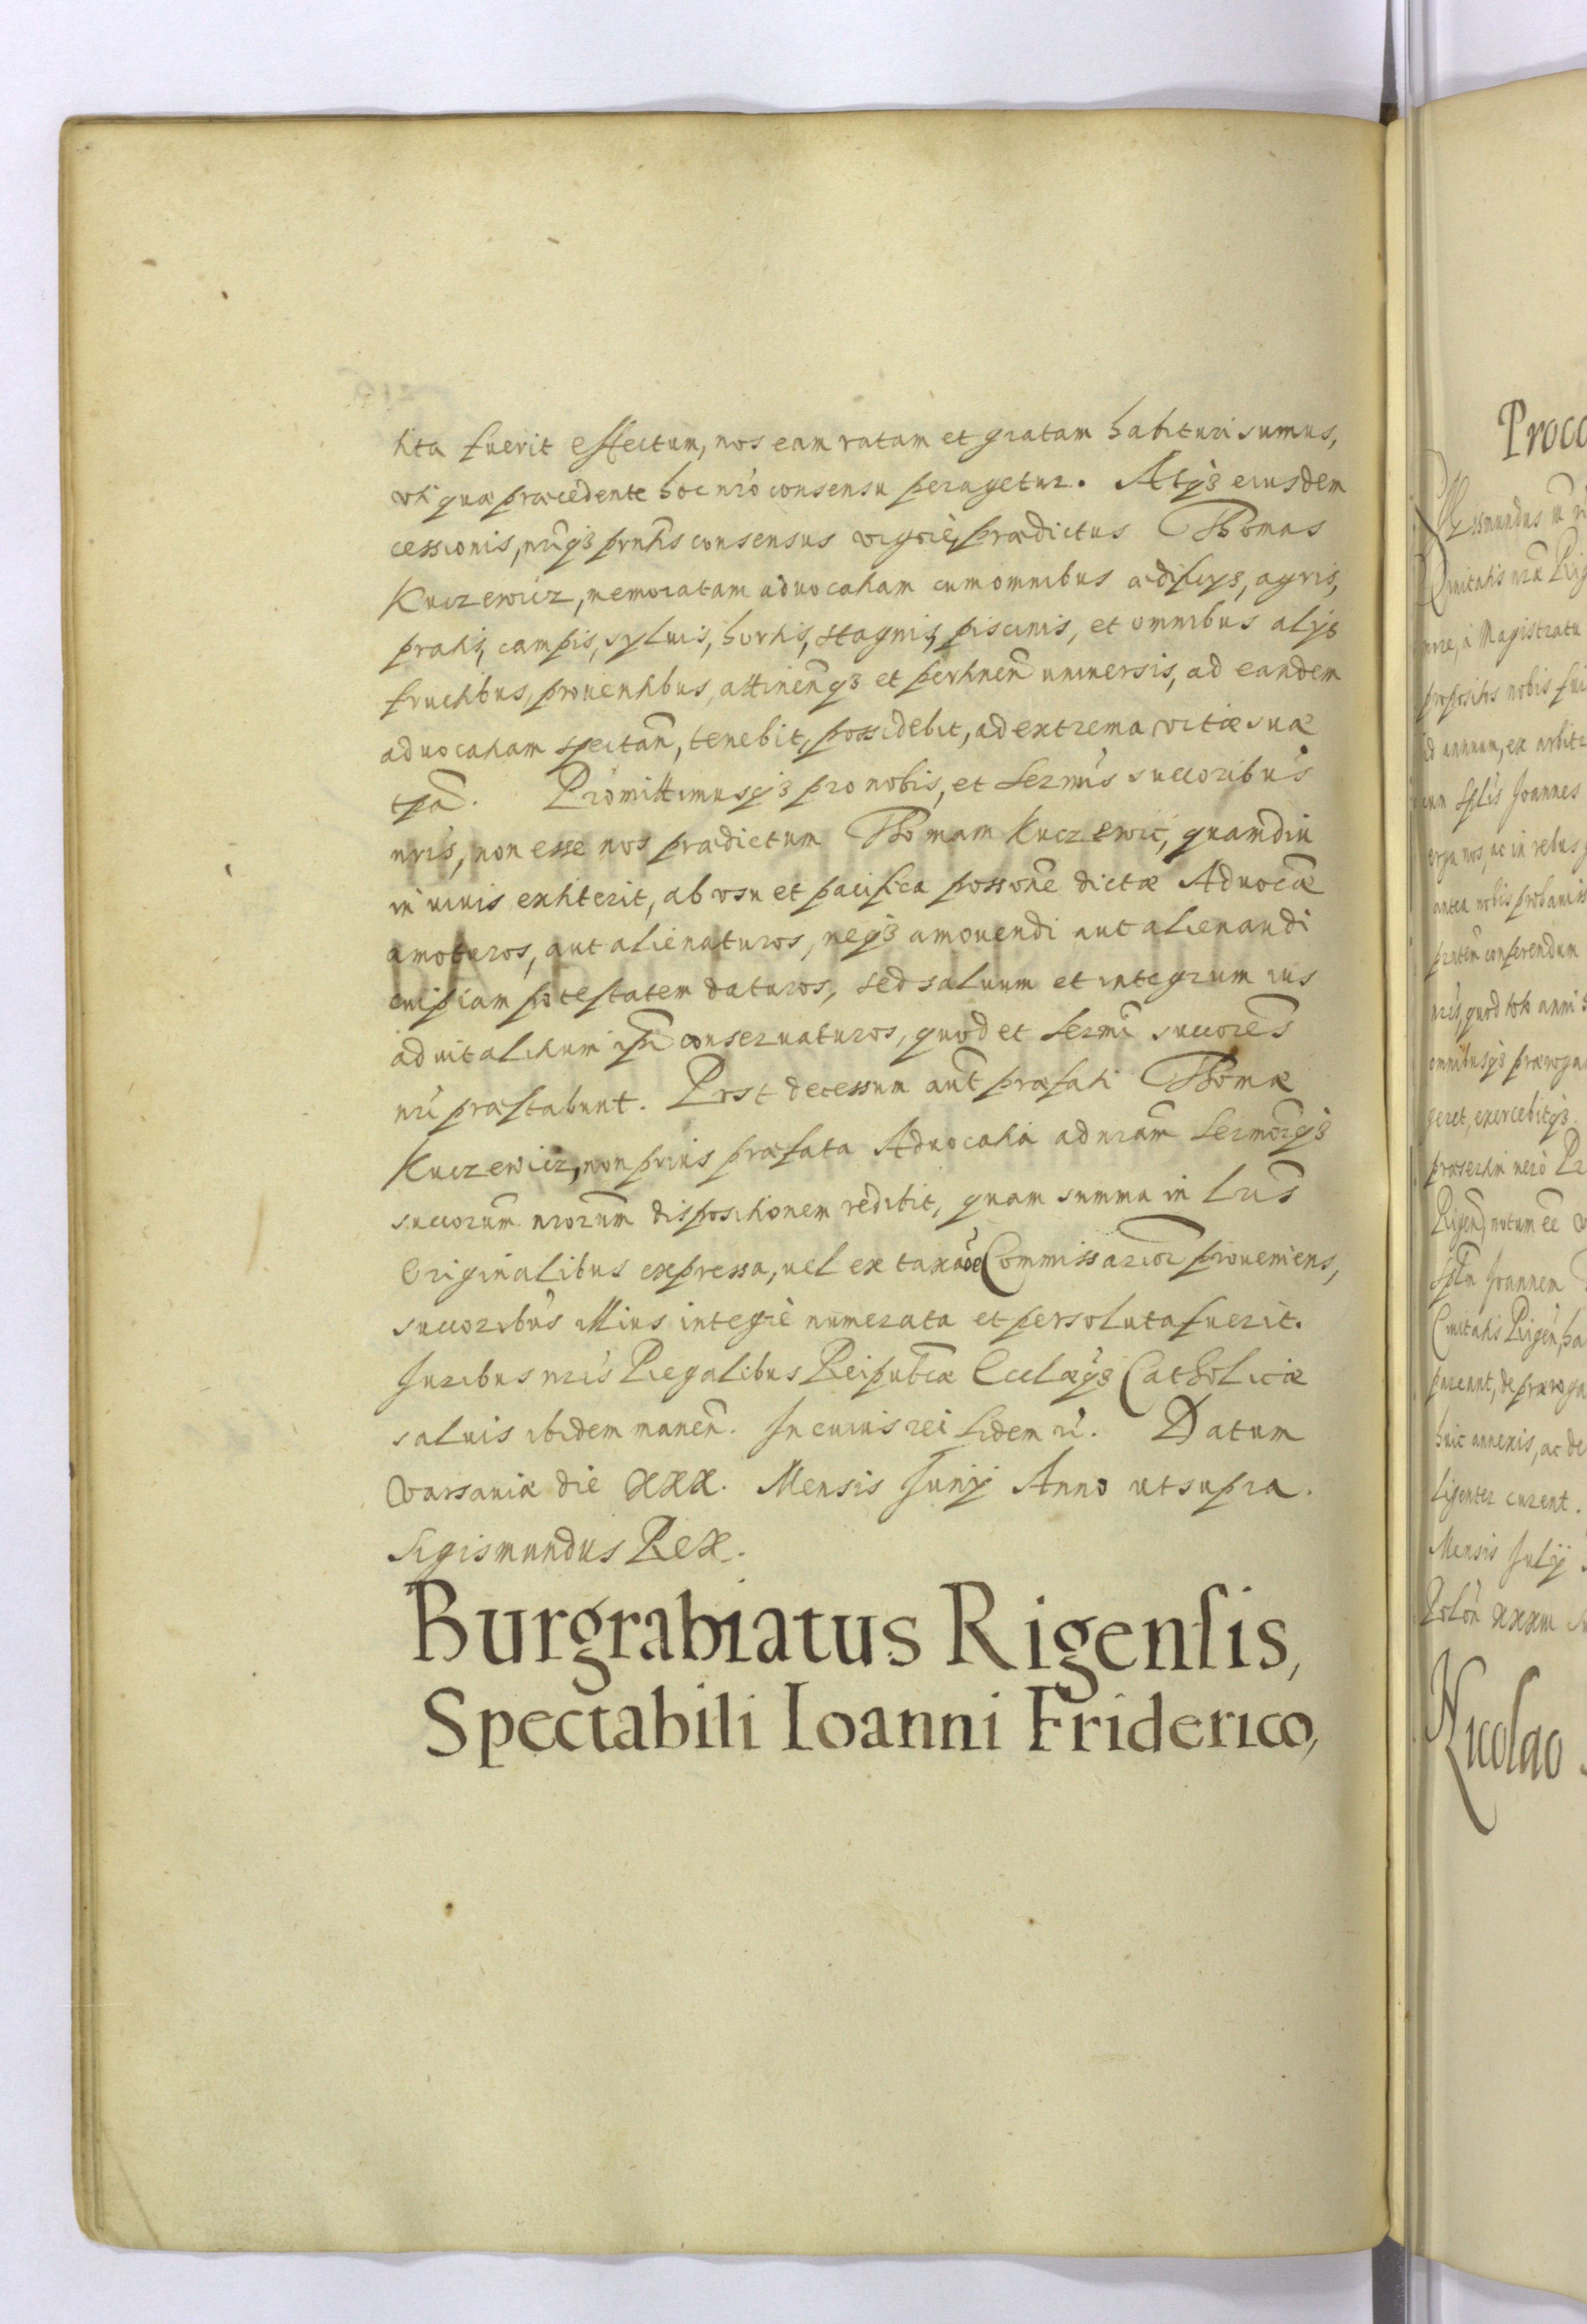 tita fuerit effectum, nos eam ratam et gratam habituri sumus,
uti quæ præcedente hoc nrõ consensu peragetur. Atq3 eiusdem
cessionis, nriq3 prntis consensus vigore, prædictus Thomas
Kuczewicz, memoratam aduocatiam cum omnibus ædificijs, agris,
pratis, campis, syluis, hortis, stagnis, piscinis, et omnibus alijs
fructibus, prouentibus, attinenq3 et pertinen uniuersis, ad eandem
aduocatiam spectan, tenebit, possidebit, ad extrema vitæ suæ
tpa. Promittimusq3 pro nobis, et Sermis succoribus
nris, non esse nos prædictum Thomam Kuczewic, quamdiu
in viuis extiterit, ab vsu et pacifica possone dictæ Aduocæ
amoturos, aut alienaturos, neq3 amouendi aut alienandi
cuipiam potestatem daturos, sed saluum et integrum ius
aduitalitium ipi conseruaturos, quod et Sermi succores
nri præstabunt. Post decessum aut præfati Thomæ
Kuczewicz, non prius præfata Aduocatia ad nram Sermorq3
succorum nrorum dispositionem redibit, quam summa in Lris
Originalibus expressa, uel ex taxaoe Commissarior proueniens,
succoribus illius integre numerata et persoluta fuerit.
Juribus nris Regalibus Reipubcæ Ecclæq3 Catholicæ
saluis ibidem manen. In cuius rei fidem ri. Datum
Varsauiæ die XXX. Mensis Junij Anno ut supra.
Sigismundus Rex.
Burgrabiatus Rigensis,
Spectabili Ioanni Friderico,
Proco
Civitatis nræ Rig
à Magistratu
propositos nobis fue
ad annum, ex arbitr
Joannes
erga nos, ac in rebus
antea nobis probauis
conferendum
nris, quod toto anni s
omnibusq3 præroga
geret, exercebitq3
præsertim uero Pr
Rigen, notum ee
Joannem
Ciuitatis Rigen, ha
pareant, de præroga
huic annexis, ac de
ligenter curent.
Mensis Julij
Polon xxxiii
Nicolao